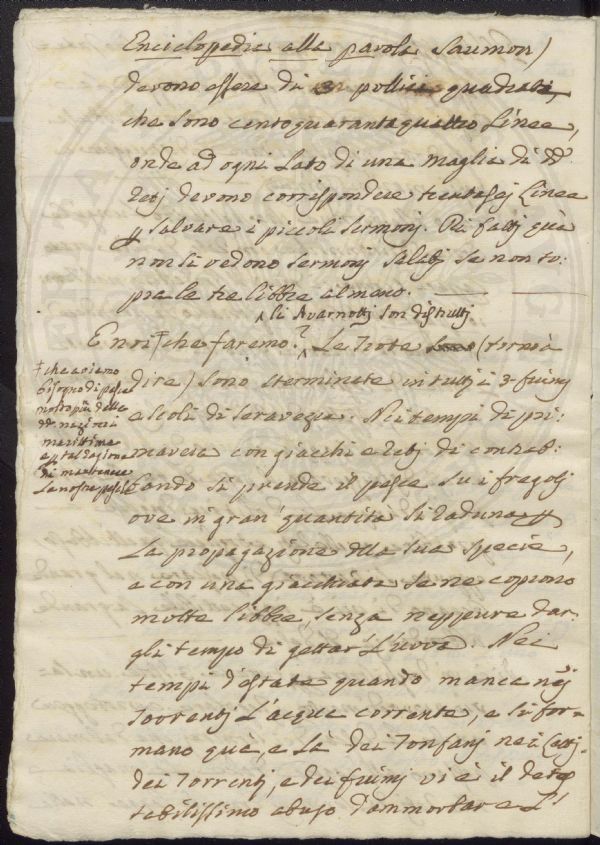 Enciclopedia alla parola Saumon)
devono essere di 3 pollici quadrati,
che sono cento quaranta quattro Linee,
onde ad ogni Lato di una maglia di dd.
retj devono corrispondere trentasej Linee
p salvare i piccoli sermonj. Di fattj quà
non si vedono sermonj salatj se non so:
pra le tre libbre almeno.
E noi † che faremo? Li Avarnottj son distruttj Le Trote (tornò a
dire) sono sterminate in tutti i 3 fiumj
e scoli di Seravezza. Nei tempi di pri:
mavera con giacchi e retj di contrab:
bando si prende il pesce su i fregolj
ove in gran' quantità si raduna p
La propagazione della sua specie,
e con una giacchiata se ne coprono
molte libbre, senza neppure dar:
gli tempo di gettar' L'uova. Nei
tempi d'estate quando manca nej
Torrentj L'acqua corrente, e si for:
mano quà, e là dei Tonfanj nei Lettj
dei Torrentj, e dei fiumj vi è il dete
tabilissimo abuso d'ammorbare L'
† che abbiamo
bisogno di pesce
molto più delle
dd. nazioni
marittime
e p tal ragione
di mantenere
le nostre pesche